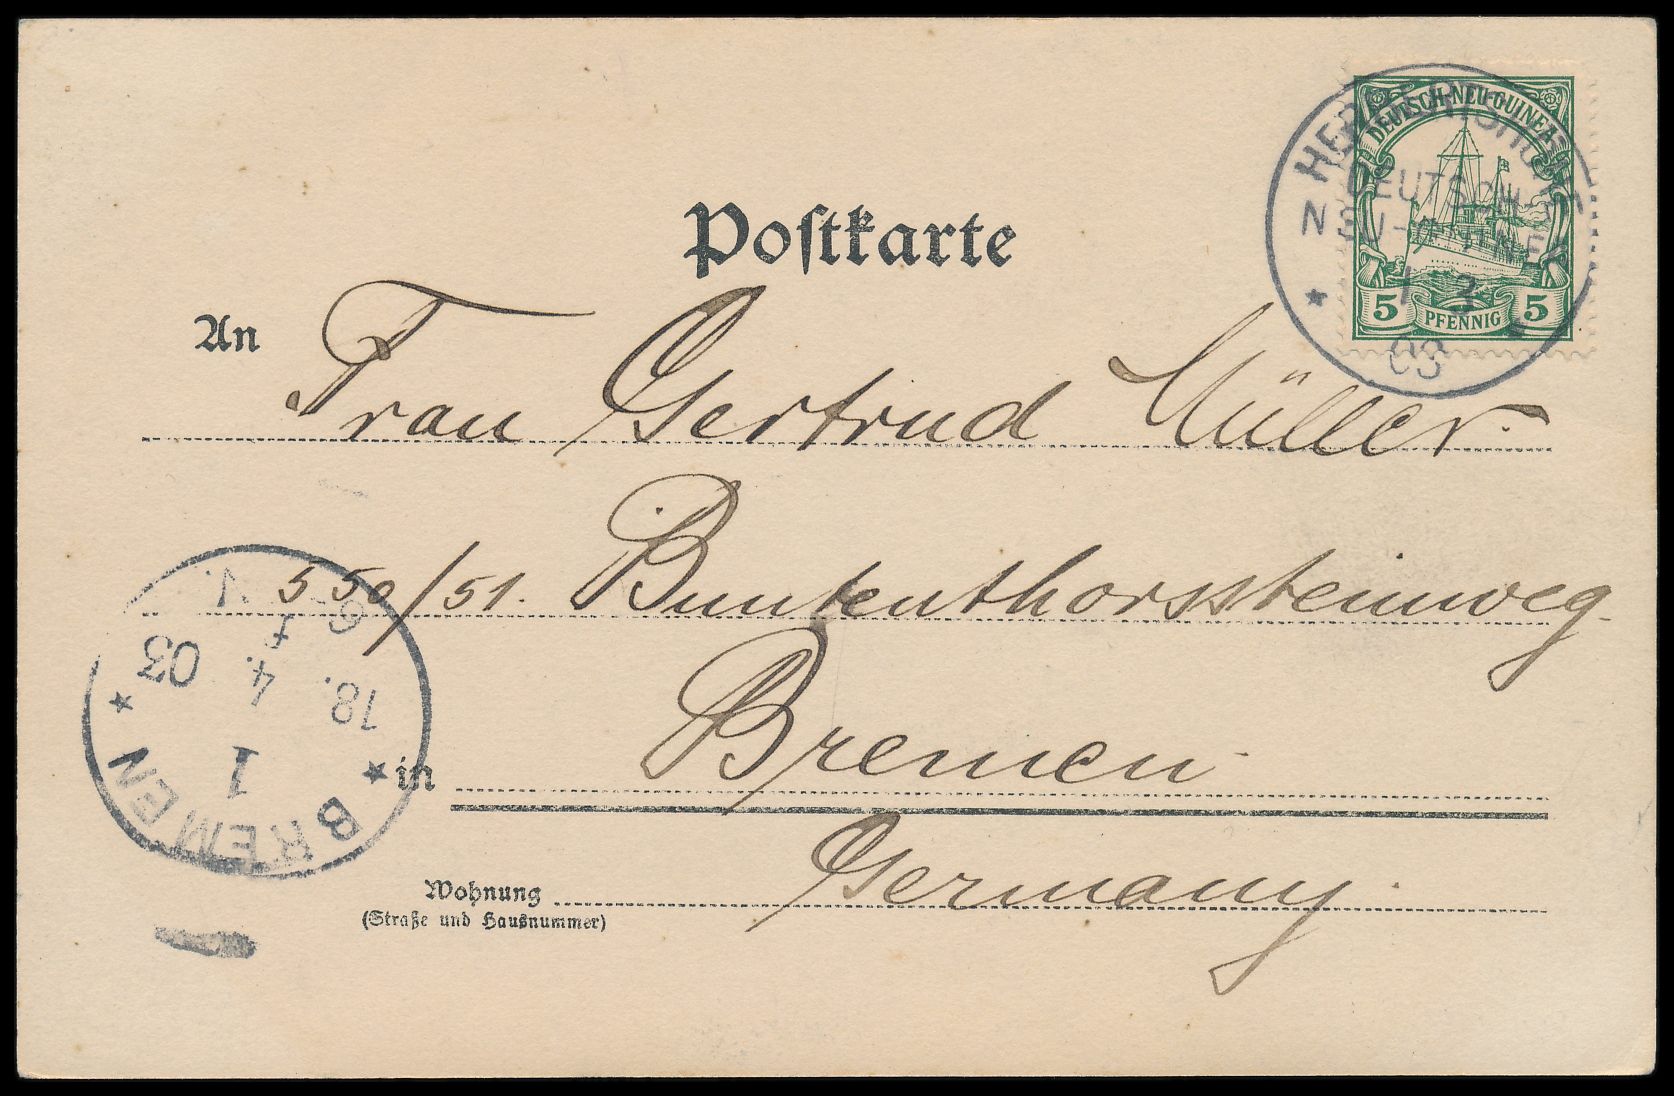 DEUTSCH-NEU-GUINEA
5 PFENNIG 5
HERBERTSHÖHE
DEUTSCH-
NEU-GUINEA
1 3
03
Postkarte
An Frau Gertrud Müller.
550/51. Buntenthorssteinweg.
in Bremen.
Germany.
Wohnung
(Straße und Hausnummer)
BREMEN
1
18. 4. 03
6-7 V.